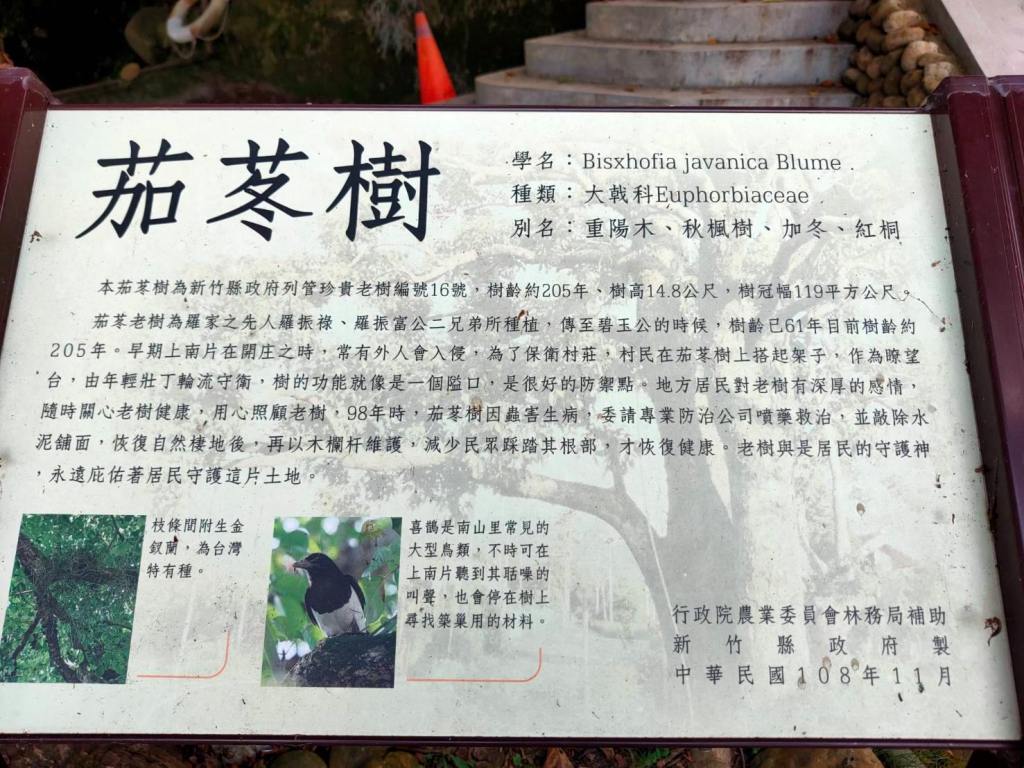 茄苳樹
學名：Bisxhofia javanica Blume .
種類：大戟科Euphorbiaceae
別名：重陽木、秋楓樹、加冬、紅桐
本茄苳樹為新竹縣政府列管珍貴老樹編號16號，樹齡約205年、樹高14.8公尺，樹冠幅119平方公尺。
茄苳老樹為羅家之先人羅振祿、羅振富公二兄弟所種植，傳至碧玉公的時候，樹齡已61年目前樹齡約
205年。早期上南片在開庄之時，常有外人會入侵，為了保衛村莊，村民在茄苳樹上搭起架子，作為瞭望
台，由年輕壯丁輪流守衛，樹的功能就像是一個隘口，是很好的防禦點。地方居民對老樹有深厚的感情，
隨時關心老樹健康，用心照顧老樹，98年時，茄苳樹因蟲害生病，委請專業防治公司噴藥救治，並敲除水
泥鋪面，恢復自然棲地後，再以木欄杆維護，減少民眾踩踏其根部，才恢復健康。老樹與是居民的守護神
，永遠庇佑著居民守護這片土地。
枝條間附生金
釵蘭，為台灣
特有種。
喜鵲是南山里常見的
大型鳥類，不時可在
上南片聽到其聒噪的
叫聲，也會停在樹上
尋找築巢用的材料。
行政院農業委員會林務局補助
新竹縣政府製
中華民國108年11月